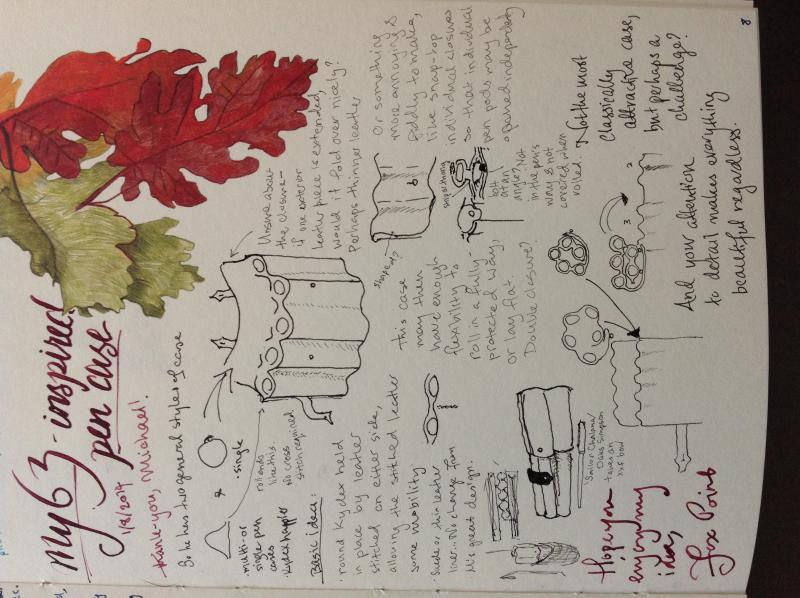 My63-inspired
pen case
1/8/2014
thank-you, Michael!
So he has two general styles of case
&
• multi- or
single pen
cases
• single
• Kydex
roll ends
like this.
No cross
stitch required
Unsure about
the closure -
if one exterior
leather piece is extended,
would it fold over nicely?
Perhaps thinner leather
Or something
more annoying &
fiddly to make,
like snap-top
individual closures
so that individual
pen pods may be
opened independently
Basic idea:
• round Kydex held
in place by leather
stitched on either side,
allowing the stitched leather
some mobility
• Suede or thin leather
liner. No change from
M's great design.
shape of?
this case
may then
have enough
flexibility to
roll in a fully-
protected way,
or lay flat
Double closure?
bolt
at an
angle? Not
in the pen's
way & not
covered when
rolled.
Not the most
classically
attractive case,
but perhaps a
challenge?
3
2
And your attention
to detail makes everything
beautiful regardless.
Hope you
enjoy my
idea,
Fox Point
8